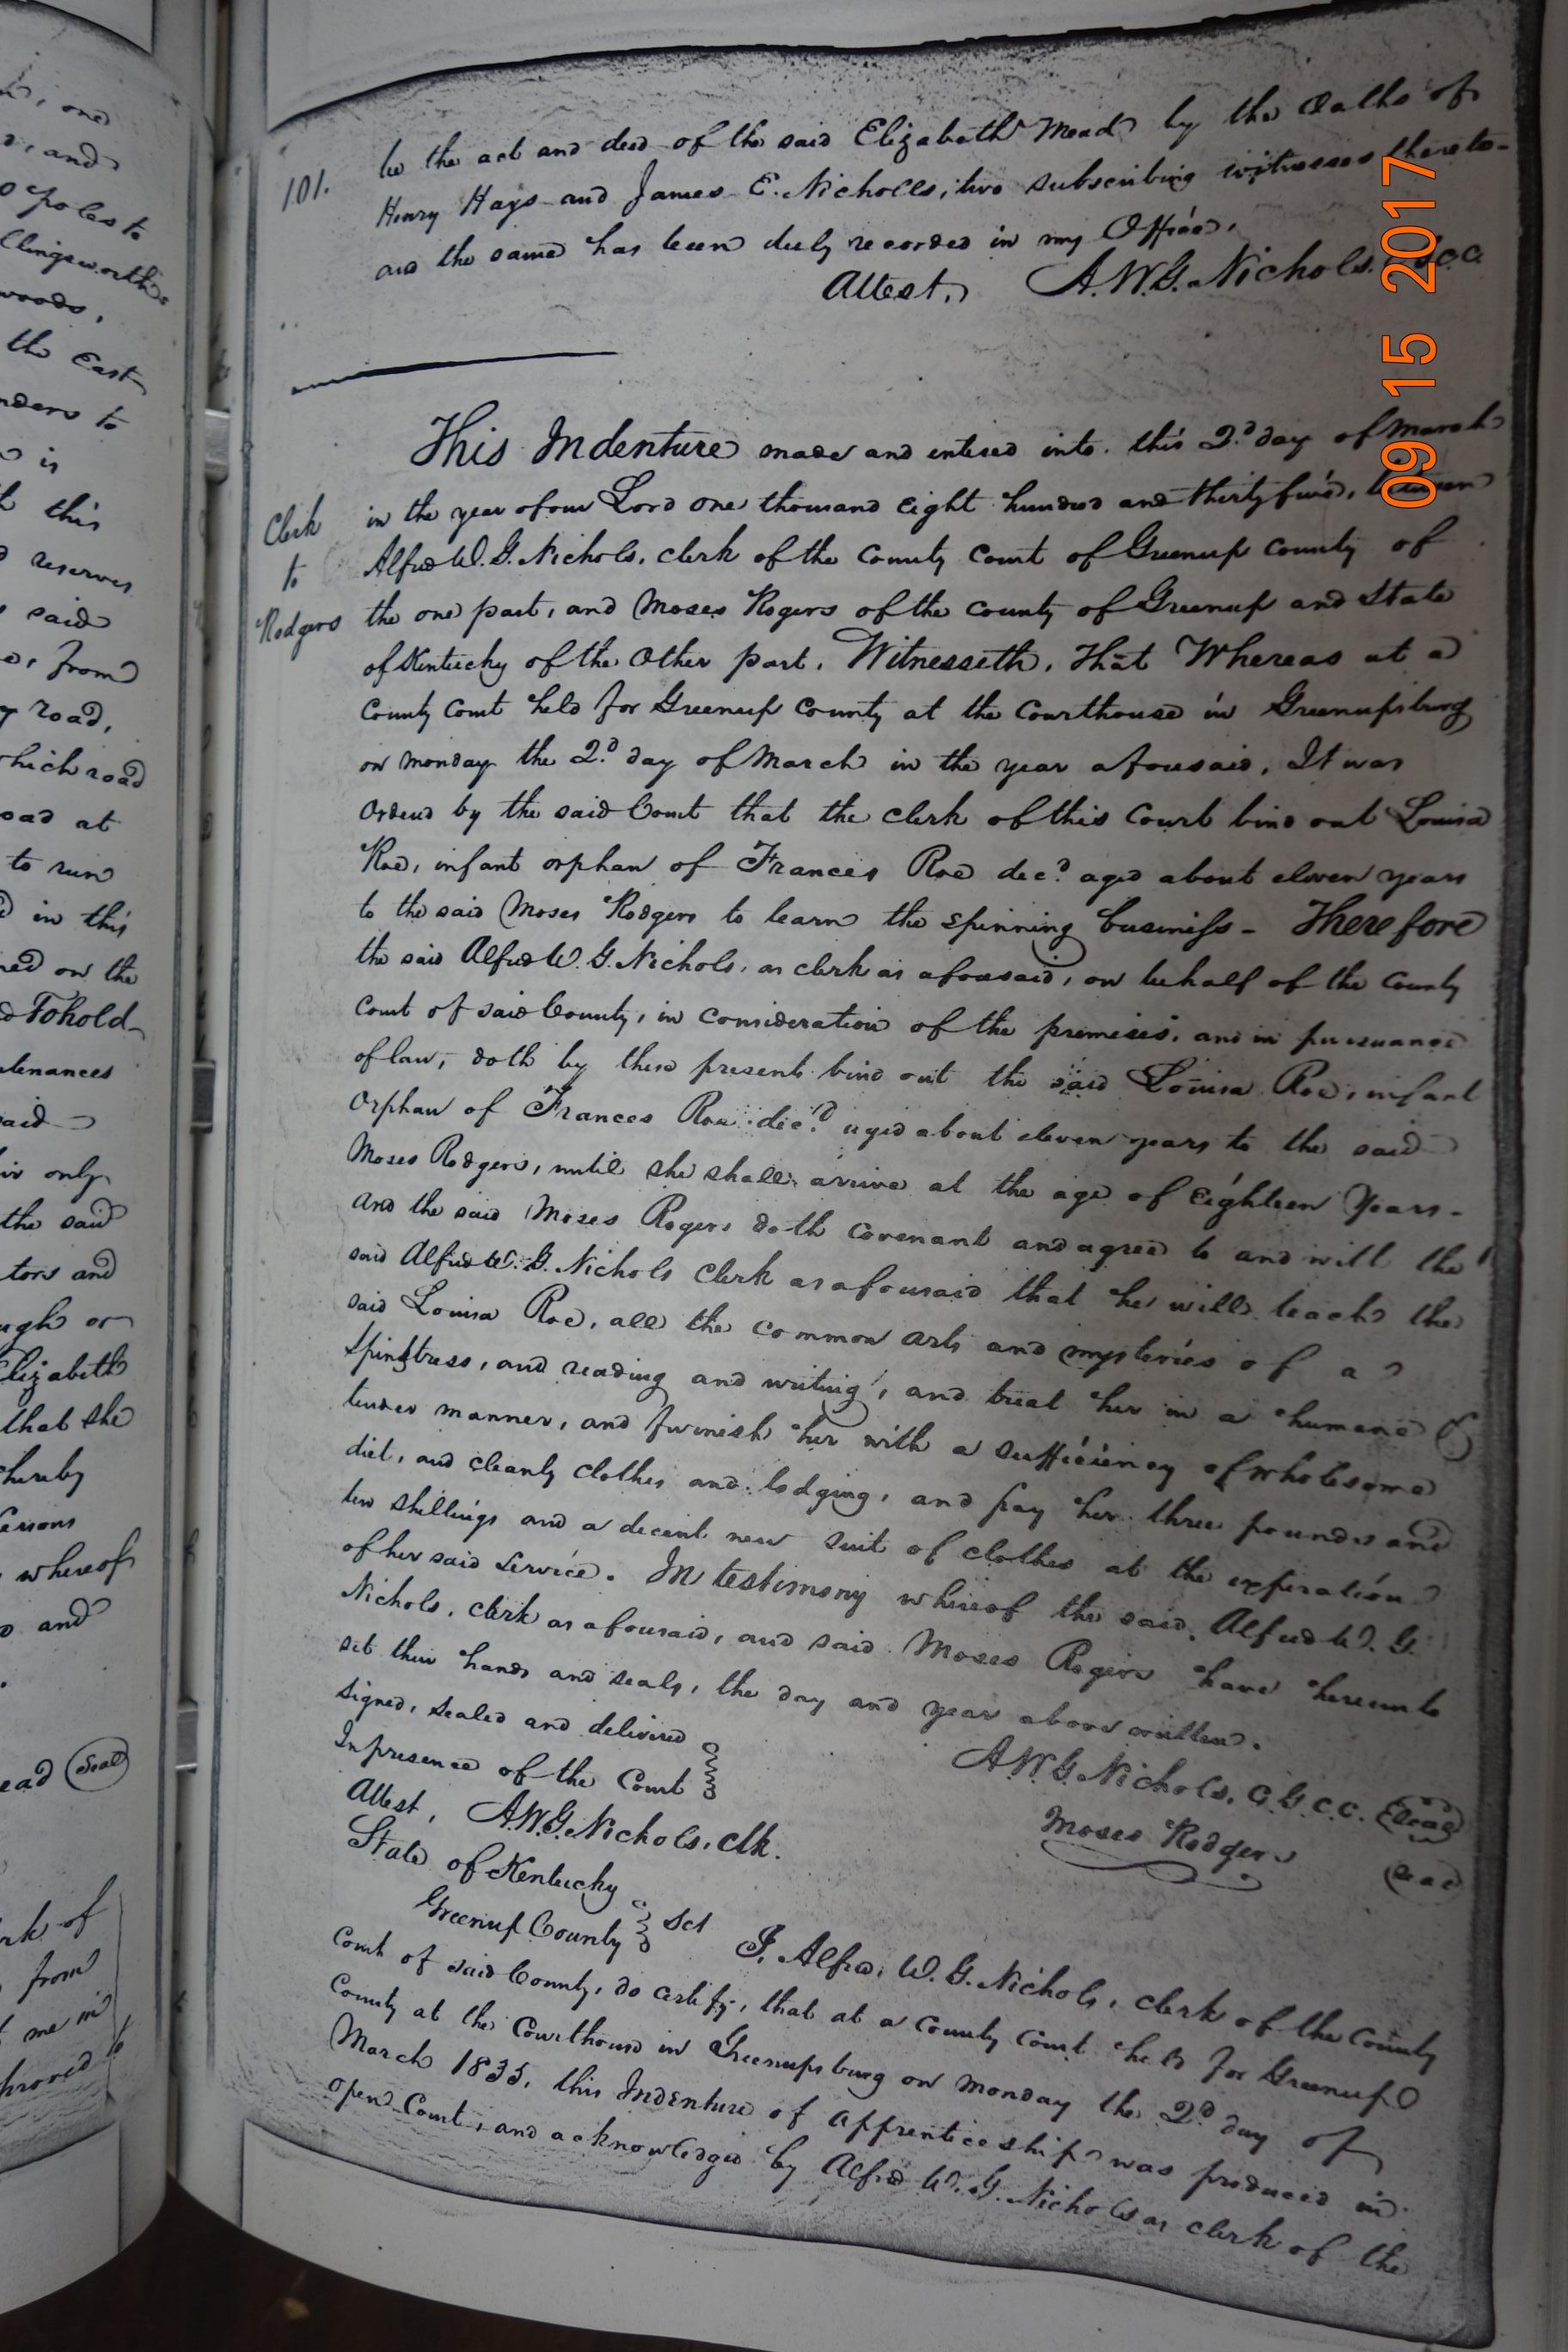 , one
, and
poles to
llingsworth
woods,
the East
nders to
is
this
reserves
said
, from
road,
which road
oad at
to run
in this
ned on the
To hold
tenances
said
only
the said
tors and
ugh or
Elizabeth
that she
hereby
ersons
whereof
and
ead Seal
rk of
from
me in
proved
101.
be the act and deed of the said Elizabeth Mead by the Oaths of
Henry Hays and James E. Nicholls, two subscribing witnesses thereto-
and the same has been duly recorded in my Office.
Attest, A.W.G. Nichols. C.C.
09 15 2017
Clerk
to
Rodgers
This Indenture made and entered into this 2d day of March
in the year of our Lord one thousand Eight hundred and thirty five, between
Alfred W. G. Nichols, clerk of the County Court of Greenup County of
the one part, and Moses Rogers of the County of Greenup and State
of Kentucky of the Other part, Witnesseth, That Whereas at a
County Court held for Greenup County at the Courthouse in Greenupsburg
on Monday the 2d day of March in the year aforesaid, It was
Ordered by the said Court that the clerk of this Court bind out Louisa
Roe, infant orphan of Frances Roe decd. aged about eleven years
to the said Moses Rodgers to learn the spinning business - Therefore
the said Alfred W. G. Nichols, as clerk as aforesaid, on behalf of the County
Court of said County, in consideration of the premises, and in pursuance
of law, doth by these present bind out the said Louisa Roe, infant
Orphan of Frances Roe decd. aged about eleven years to the said
Moses Rodgers, until she shall arrive at the age of Eighteen Years.
And the said Moses Rogers doth covenant and agree to and will the
said Alfred W. G. Nichols Clerk as aforesaid that he will teach the
said Louisa Roe, all the common arts and mysteries of a
Spinstress, and reading and writing, and treat her in a humane &
tender manner, and furnish her with a sufficiency of wholesome
diet, and cleanly clothes and lodging, and pay her three pounds and
ten shillings and a decent new suit of clothes at the expiration
of her said Service. In testimony whereof the said Alfred W. G.
Nichols, clerk as aforesaid, and said Moses Rogers have hereunto
set their hands and seals, the day and year above written.
Signed, Sealed and delivered
In presence of the Court
A.W.G. Nichols, C.G.C.C. Seal
Attest, A.W.G. Nichols, Clk.
Moses Rodgers Seal
State of Kentucky
Greenup County Sct
I, Alfred W. G. Nichols, clerk of the County
Court of said County, do certify, that at a County Court held for Greenup
County at the Courthouse in Greenupsburg on Monday the 2d day of
March 1835, this Indenture of Apprenticeship was produced in
open Court, and acknowledged by Alfred W. G. Nichols as clerk of the